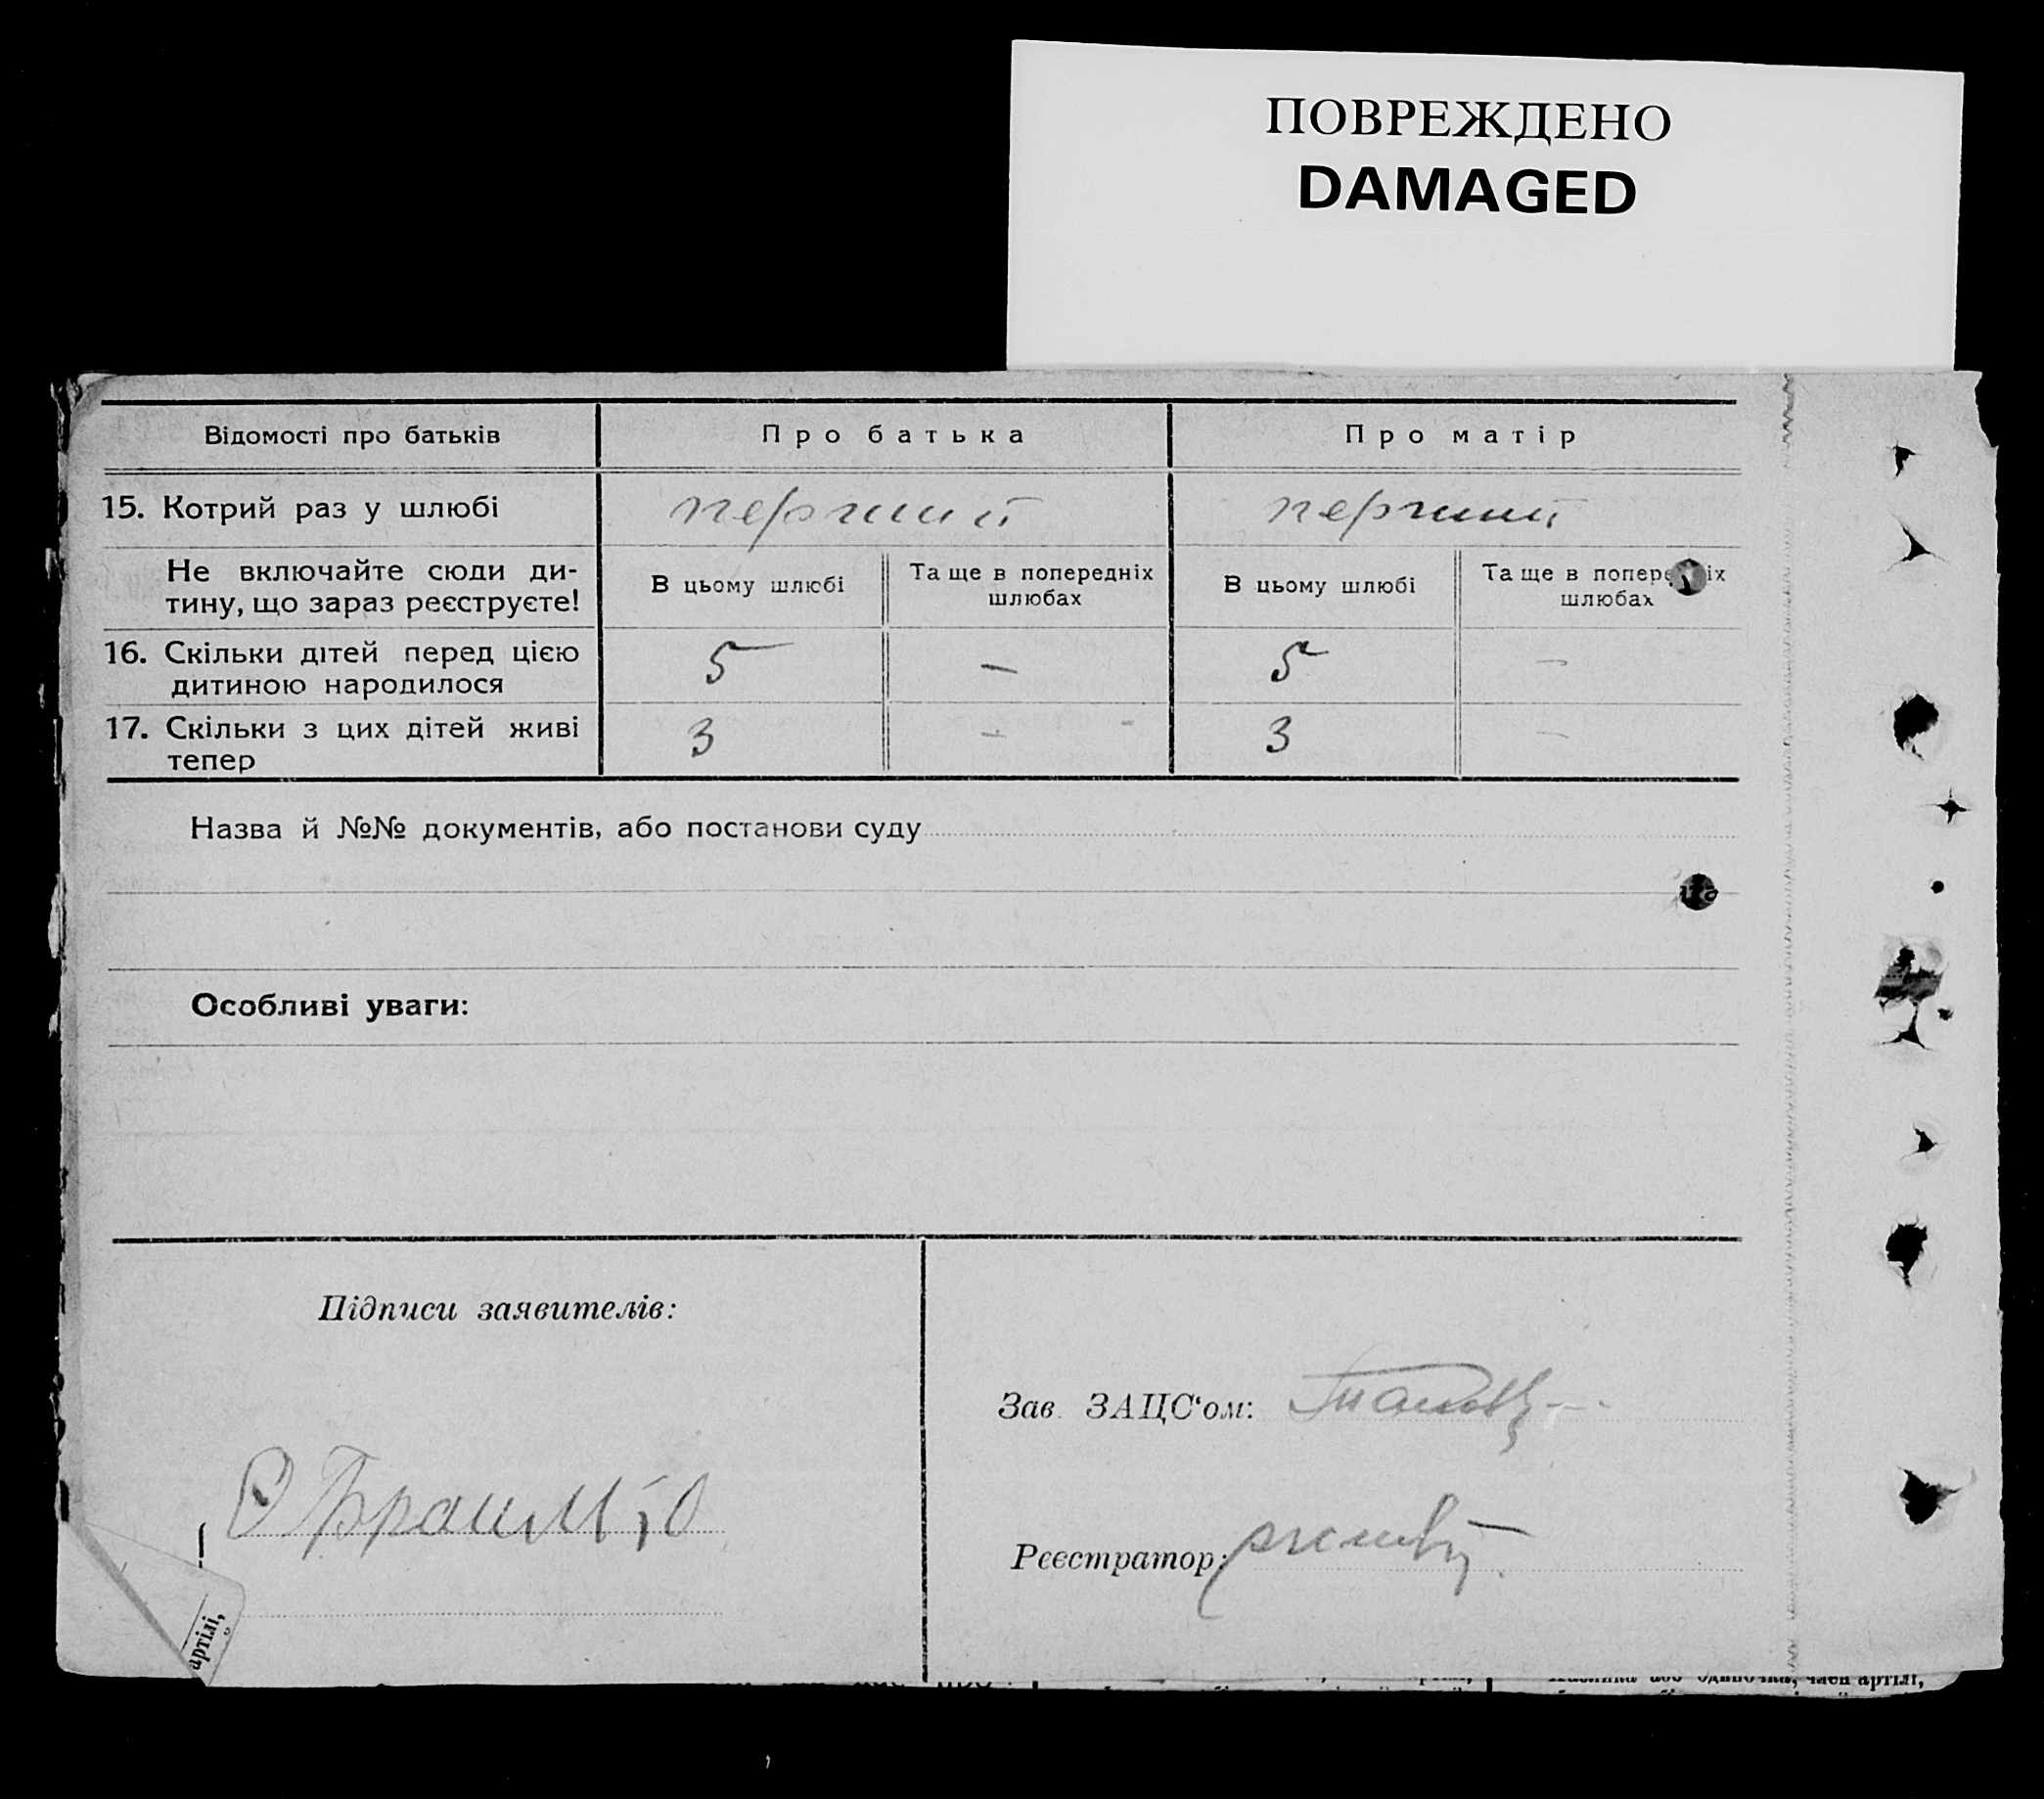 ПОВРЕЖДЕНО
DAMAGED
Відомості про батьків
Про батька
Про матір
15. Котрий раз у шлюбі
перший
перший
Не включайте сюди ди-
тину, що зараз реєструєте!
В цьому шлюбі
Та ще в попередніх
шлюбах
В цьому шлюбі
Та ще в попер іх
шлюбах
16. Скільки дітей перед цією
дитиною народилося
5
—
5
—
17. Скільки з цих дітей живі
тепер
3
—
3
—
Назва й №№ документів, або постанови суду
Особливі уваги:
Підписи заявителів:
Зав. ЗАЦС‘ом:
Реєстратор:
артілі,
член артілі,